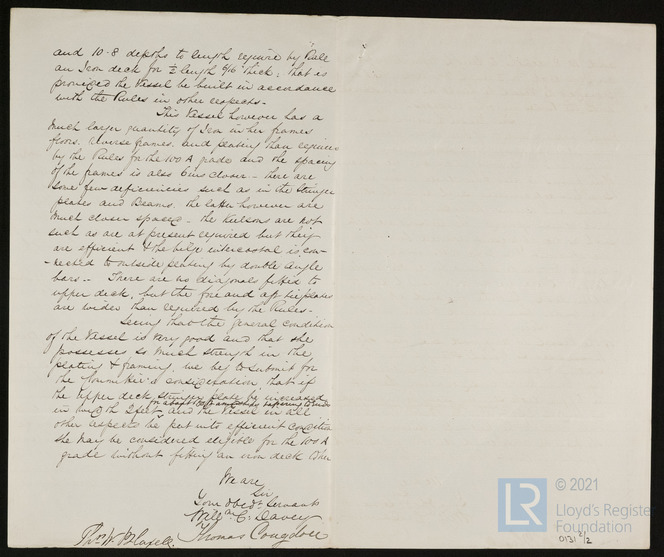 and 10-8 depths to length require by Rule
an Iron deck for ½ length 6/16 thick; that is
provided the Vessel be built in accordance
with the Rules in other respects.-
This Vessel however has a
much larger quantity of Iron in her frames
floors, reverse frames, and plating than required
by the Rules for the 100 A grade and the spacing
of the frames is also 6 ins closer - there are
some few deficiencies such as in the Stringer
plates and Beams. the latter however are
much closer spaced - the Keelsons are not
such as are at present required but they
are efficient & the bilge intercostal is con-
-nected to outside plating by double angle
bars.- There are no diagonals fitted to
upper deck, but the fore and aft tie plates
are wider than required by the Rules.-
Seeing that the general condition
of the Vessel is very good and that she
possesses so much strength in the
plating & framing, we beg to submit for
the Committee's consideration, that if
the Upper deck stringer plate be increased
for about amidships tapering to ends
in width and the Vessel in all
other respects be put into efficient condition
she may be considered eligible for the 100 A
grade without fitting an iron deck
We are
Sir
Your obedt Servants
Willm C. Davey
Thomas Congdon
Thos W.
© 2021
Lloyd's Register
Foundation
0131 2/2